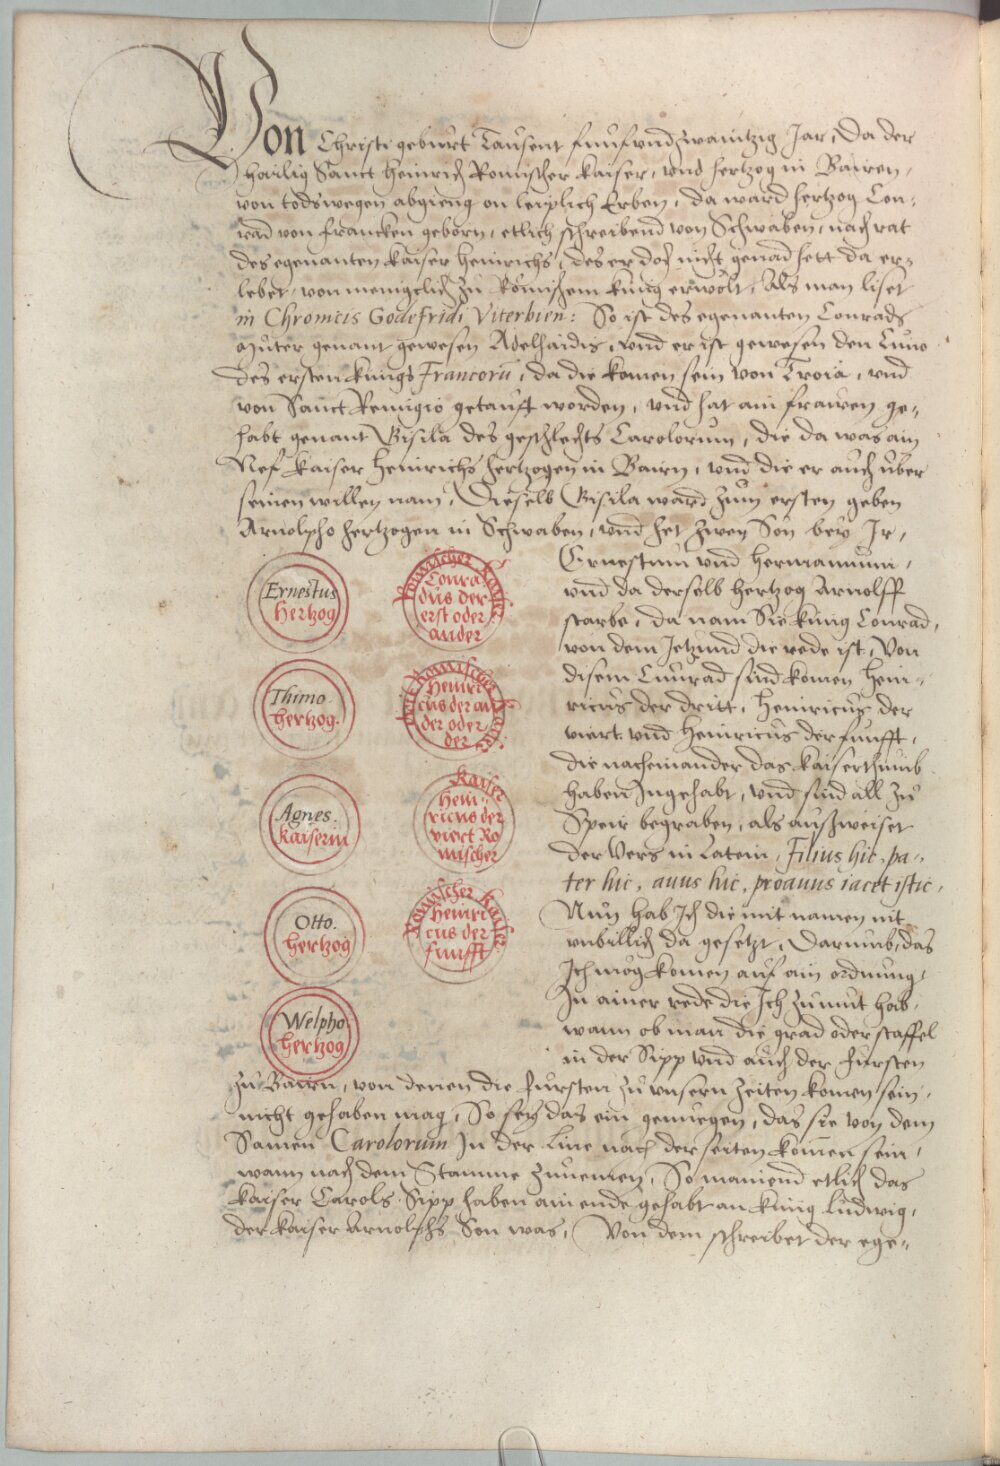 Von Christi geburt Tausent funfundzwaintzig Jar, Da der
hailig Sanct Heinrich Römischer kaiser, und hertzog in Bairen,
von todswegen abgieng on leiplich Erben, da ward hertzog Con-
rad von francken geborn, etlich schreibend von Schwaben, nach rat
des egenanten kaiser Heinrichs, des er doch nicht genad hett da er
lebet, von menigclich zu Römischem kunig erwölt, Als man liset
in Chronicis Godefridi Viterbien: So ist des egenanten Conrads
Muter genant gewesen Adelhaidis, und er ist gewesen den Linio
des ersten kunigs Francorū, da die komen sein von Troia, und
von Sanct Remigio getaufft worden, und hat ain frawen ge-
habt genant Gisila des geschlechts Carolorum, die da was ain
Nef kaiser Heinrichs hertzogen in Bairn, und die er auch uber
seinen willen nam, Dieselb Gisila ward zum ersten geben
Arnolpho hertzogen in Schwaben, und het zwen Sön bey Ir,
Ernestum und Hermannum,
und da derselb hertzog Arnolff
starbe, da nam Sie kunig Conrad,
von dem Jetzund die rede ist, Von
disem Cunrad sind komen Hein-
ricus der dritt, Heinricus der
viert und Heinricus der funfft,
die nacheinander das kaiserthumb
haben Ingehabt, und sind all zu
Speir begraben, als außweiset
der Vers in Latein, Filius hic, pa-
ter hic, auus hic, proauus iacet istic,
Nun hab Ich die mit namen nit
unbillich da gesetzt, Darumb, das
Ich mög komen auf ain ordnung,
In ainer rede die Ich zumut hab,
wann ob man die grad oder staffel
in der Sipp und auch der fursten
Ernestus
hertzog
Römischer Kaiser
Conra
dus der
erst oder
ander
Thimo
hertzog.
Römischer
Heinri
cus der an
der oder
der
Agnes.
kaiserin
Kaiser
Hein-
ricus der
viert Ro
mischer
Otto.
hertzog
Römischer Kaiser
Heinri
cus der
funfft
Welpho
hertzog
zu Bairn, von denen die fursten zu unsern zeiten komen sein,
nicht gehaben mag, So sey das ein genuegen, das sie von dem
Samen Carolorum In der Line nach der seiten komen sein,
wann nach dem Stamme zunemen, So mainend etlich das
kaiser Carols Sipp haben ain ende gehabt an kunig Ludwig,
der kaiser Arnolphs Son was, Von dem schreibet der ege-